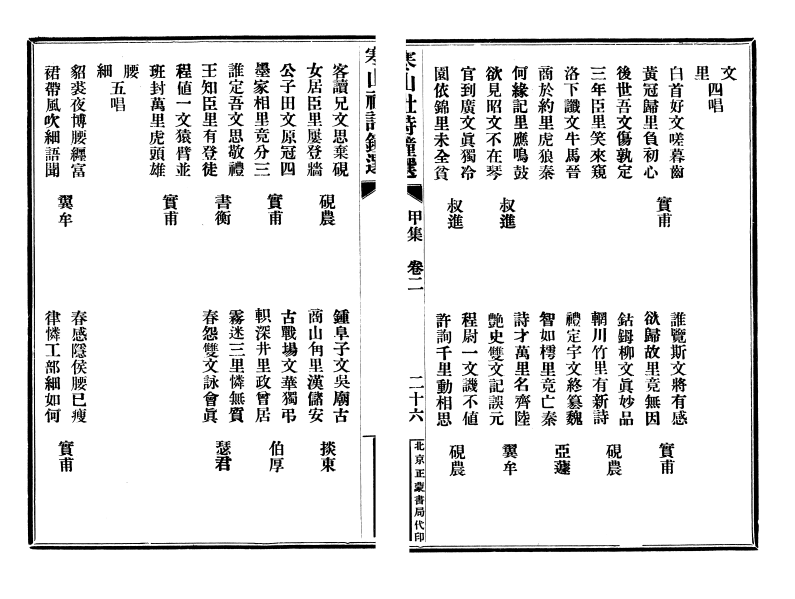 文里 四唱
白首好文嗟暮齒
黃冠歸里負初心 實甫
誰覽斯文將有感
欲歸故里竟無因 實甫
後世吾文傷孰定
三年臣里笑來窺
鈷鉧柳文眞妙品
輞川竹里有新詩 硯農
洛下讖文牛馬晉
商於約里虎狼秦
禮定宇文終篡魏
智如樗里竟亡秦 亞蘧
何緣記里應鳴鼓
欲見昭文不在琴 叔進
詩才萬里名齊陸
艷史雙文記誤元 翼牟
官到廣文眞獨冷
園依錦里未全貧 叔進
程尉一文譏不値
許詢千里動相思 硯農
寒山社詩鐘選 甲集 卷二 二十六 北京正蒙書局代印
寒山社詩鐘選
客讀兄文思棄硯
女居臣里屢登牆 硯農
鍾阜子文吳廟古
商山甪里漢儲安 掞東
公子田文原冠四
墨家相里竟分三 實甫
古戰場文華獨弔
軹深井里政曾居 伯厚
誰定吾文思敬禮
王知臣里有登徒 書衡
霧迷三里憐無質
春怨雙文詠會眞 瑟君
程値一文猿臂並
班封萬里虎頭雄 實甫
腰細 五唱
貂裘夜博腰纏富
裙帶風吹細語聞 翼牟
春感隱侯腰已瘦
律憐工部細如何 實甫